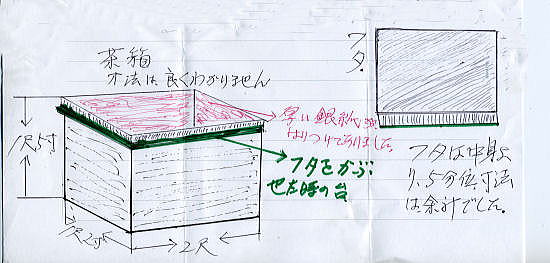 茶箱
寸法は良くわかりません
フタ.
1尺5寸
厚い銀紙が
はりつけてありました.
フタをかぶ
せた時の台
1尺2寸
2尺
フタは中身よ
り、5分位寸法
は余計でした。